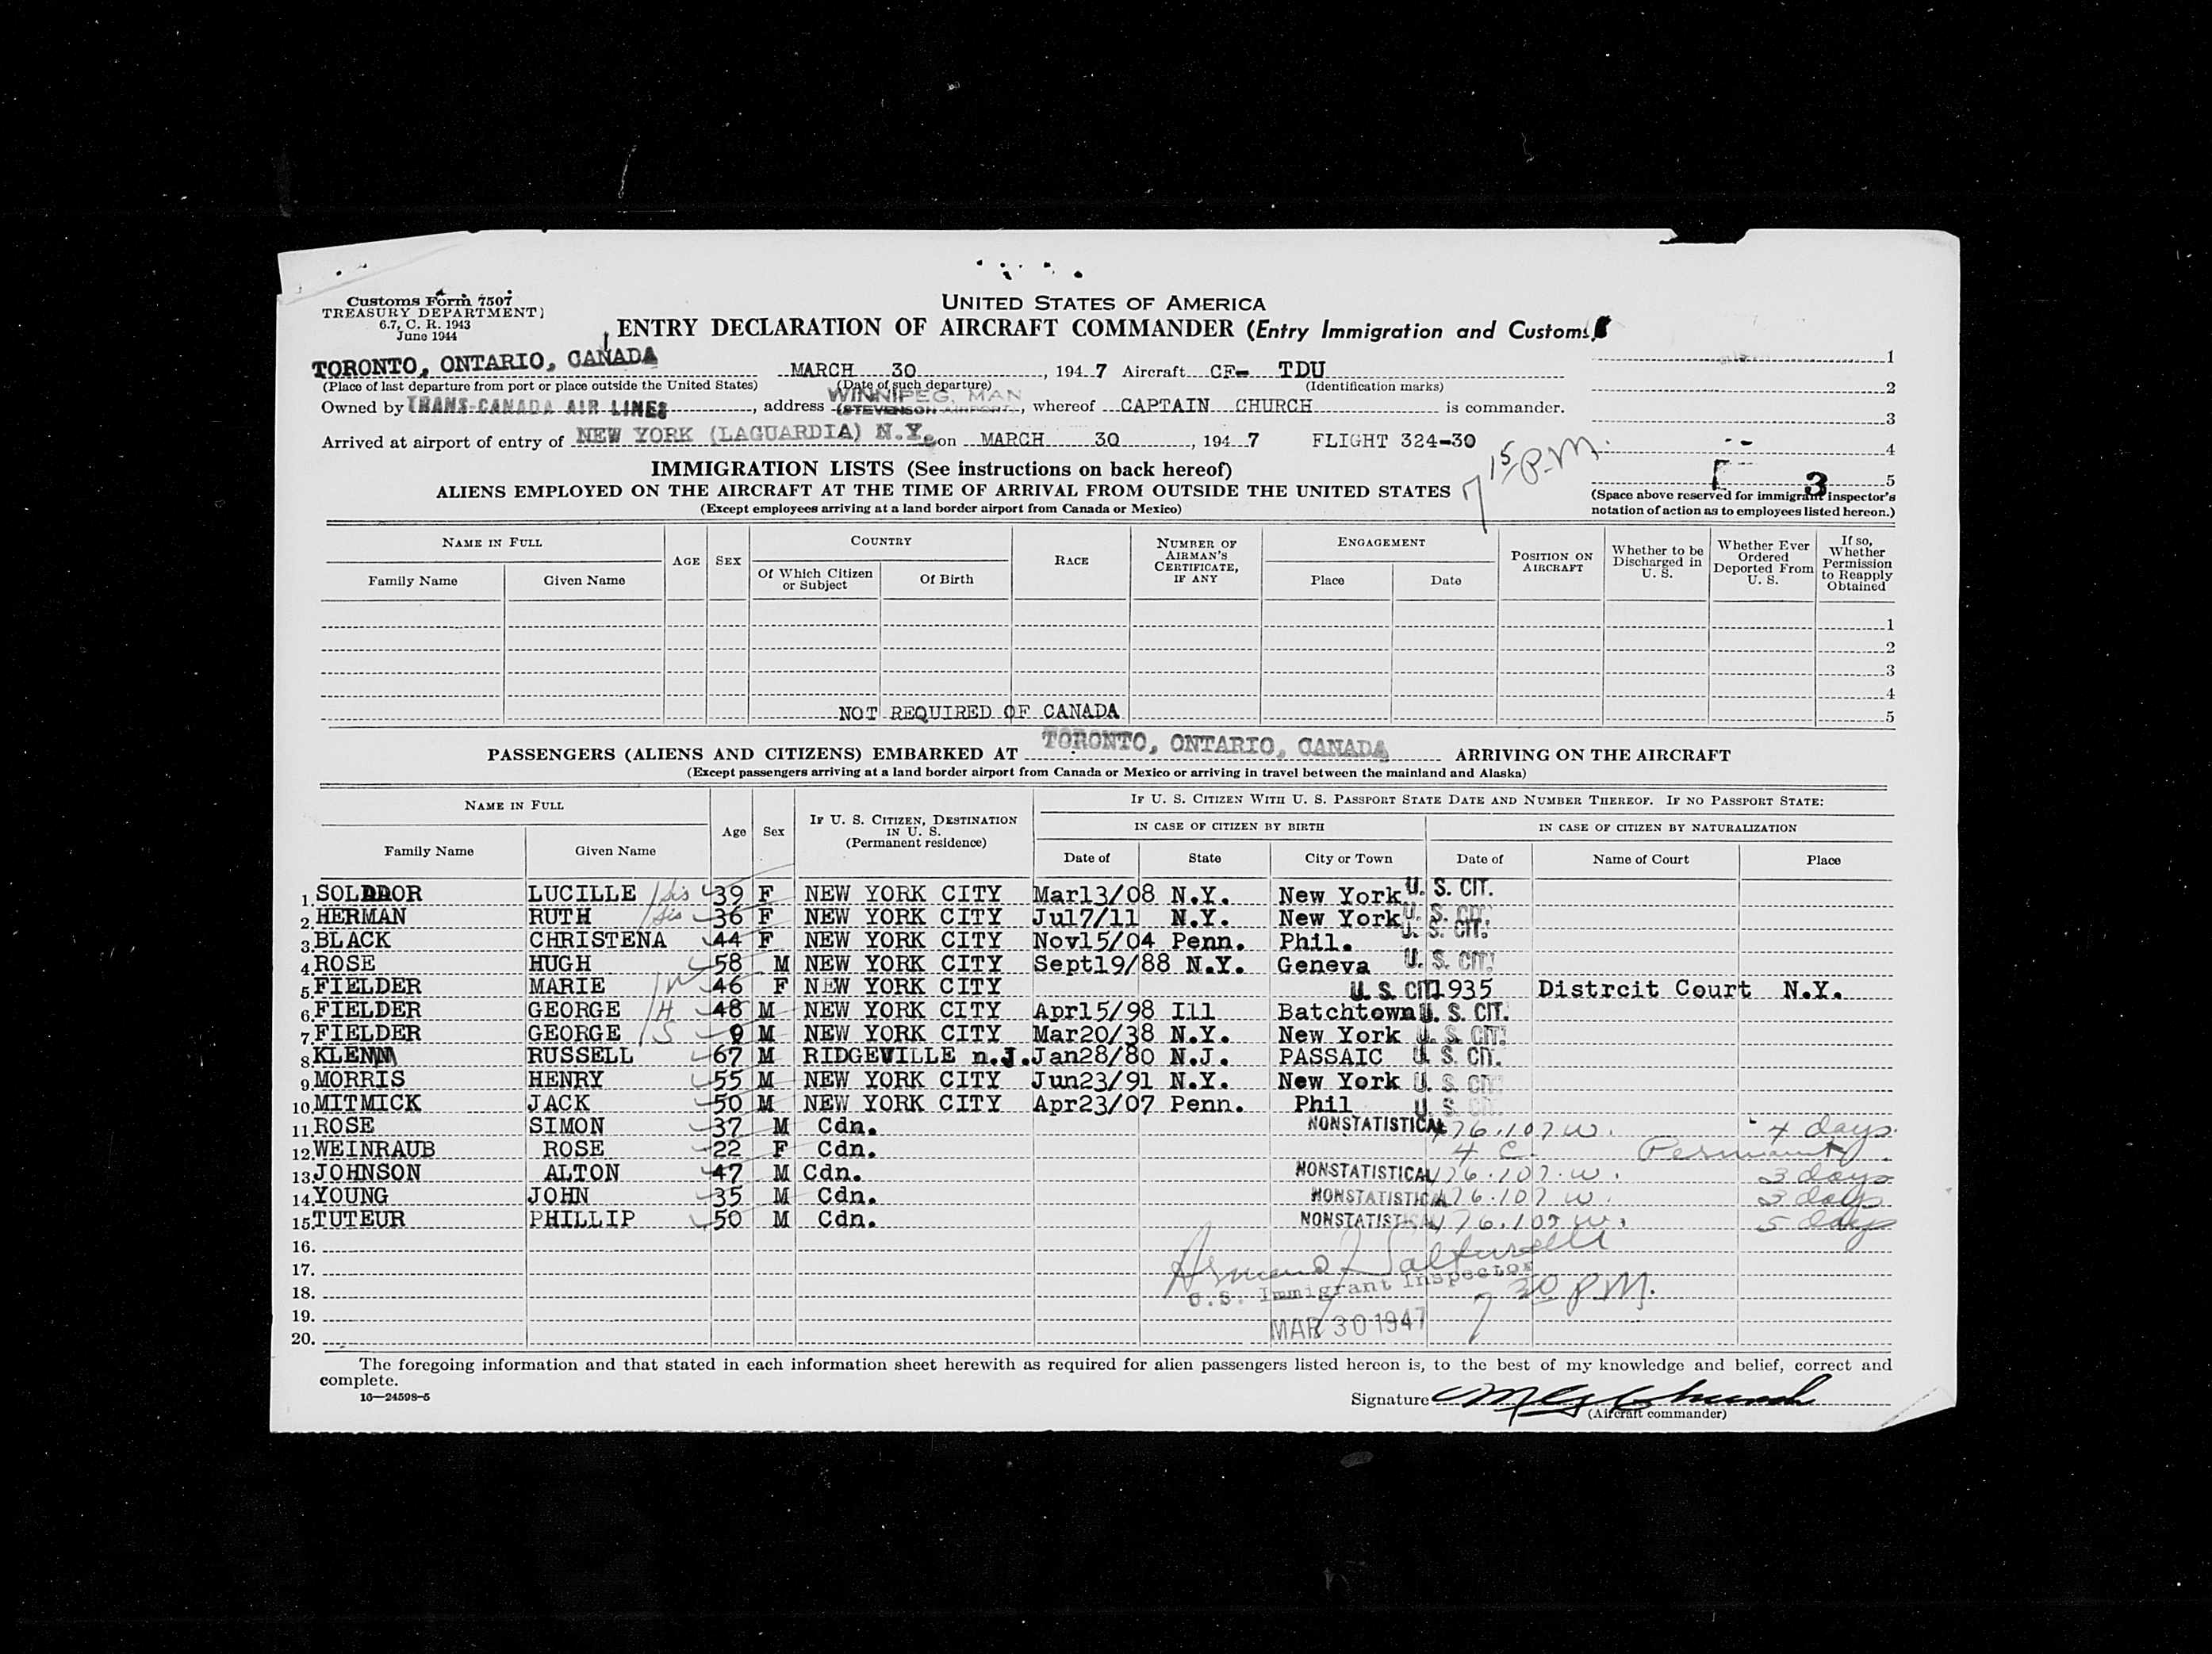 Customs Form 7507
TREASURY DEPARTMENT
6.7, C. R. 1943
June 1944
UNITED STATES OF AMERICA
ENTRY DECLARATION OF AIRCRAFT COMMANDER (Entry Immigration and Customs)
TORONTO, ONTARIO, CANADA MARCH 30, 1947 Aircraft CF- TDU
(Place of last departure from port or place outside the United States) (Date of such departure) (Identification marks)
Owned by TRANS-CANADA AIR LINES, address WINNIPEG, MAN (STEVENSON AIRPORT), whereof CAPTAIN CHURCH is commander.
Arrived at airport of entry of NEW YORK (LAGUARDIA) N.Y. on MARCH 30, 1947 FLIGHT 324-30
7 15 P.M.
1
2
3
4
5
3
(Space above reserved for immigrant inspector's notation of action as to employees listed hereon.)
IMMIGRATION LISTS (See instructions on back hereof)
ALIENS EMPLOYED ON THE AIRCRAFT AT THE TIME OF ARRIVAL FROM OUTSIDE THE UNITED STATES
(Except employees arriving at a land border airport from Canada or Mexico)
NAME IN FULL AGE SEX COUNTRY RACE NUMBER OF AIRMAN'S CERTIFICATE, IF ANY ENGAGEMENT POSITION ON AIRCRAFT Whether to be Discharged in U. S. Whether Ever Ordered Deported From U. S. If so, Whether Permission to Reapply Obtained
Family Name Given Name Of Which Citizen or Subject Of Birth Place Date
1
2
3
4
NOT REQUIRED OF CANADA 5
PASSENGERS (ALIENS AND CITIZENS) EMBARKED AT TORONTO, ONTARIO, CANADA ARRIVING ON THE AIRCRAFT
(Except passengers arriving at a land border airport from Canada or Mexico or arriving in travel between the mainland and Alaska)
NAME IN FULL Age Sex IF U. S. CITIZEN, DESTINATION IN U. S. (Permanent residence) IF U. S. CITIZEN WITH U. S. PASSPORT STATE DATE AND NUMBER THEREOF. IF NO PASSPORT STATE:
IN CASE OF CITIZEN BY BIRTH IN CASE OF CITIZEN BY NATURALIZATION
Family Name Given Name Date of State City or Town Date of Name of Court Place
1. LUCILLE sis 39 F NEW YORK CITY Mar13/08 N.Y. New York U. S. CIT.
2. HERMAN RUTH sis 36 F NEW YORK CITY Jul7/11 N.Y. New York U. S. CIT.
3. BLACK CHRISTENA 44 F NEW YORK CITY Nov15/04 Penn. Phil. U. S. CIT.
4. ROSE HUGH 58 M NEW YORK CITY Sept19/88 N.Y. Geneva U. S. CIT.
5. FIELDER MARIE W 46 F NEW YORK CITY U. S. CIT 1935 Distrcit Court N.Y.
6. FIELDER GEORGE H 48 M NEW YORK CITY Apr15/98 Ill Batchtown U. S. CIT.
7. FIELDER GEORGE S 9 M NEW YORK CITY Mar20/38 N.Y. New York U. S. CIT.
8. KLENM RUSSELL 67 M RIDGEVILLE n.J. Jan28/80 N.J. PASSAIC U. S. CIT.
9. MORRIS HENRY 55 M NEW YORK CITY Jun23/91 N.Y. New York U. S. CIT
10. MITMICK JACK 50 M NEW YORK CITY Apr23/07 Penn. Phil U. S. CIT.
11. ROSE SIMON 37 M Cdn. NONSTATISTICAL 176.107 W. 4 days
12. WEINRAUB ROSE 22 F Cdn. 4 C. Permanently
13. JOHNSON ALTON 47 M Cdn. NONSTATISTICAL 176.107.W. 3 days
14. YOUNG JOHN 35 M Cdn. NONSTATISTICAL 176.107 W. 3 days
15. TUTEUR PHILLIP 50 M Cdn. NONSTATISTICAL 176.107 W. 5 days
16.
17.
18. U.S. Immigrant Inspector 7 30 P.M.
19. MAR 30 1947
20.
The foregoing information and that stated in each information sheet herewith as required for alien passengers listed hereon is, to the best of my knowledge and belief, correct and
complete.
16—24598-5
Signature Church
(Aircraft commander)